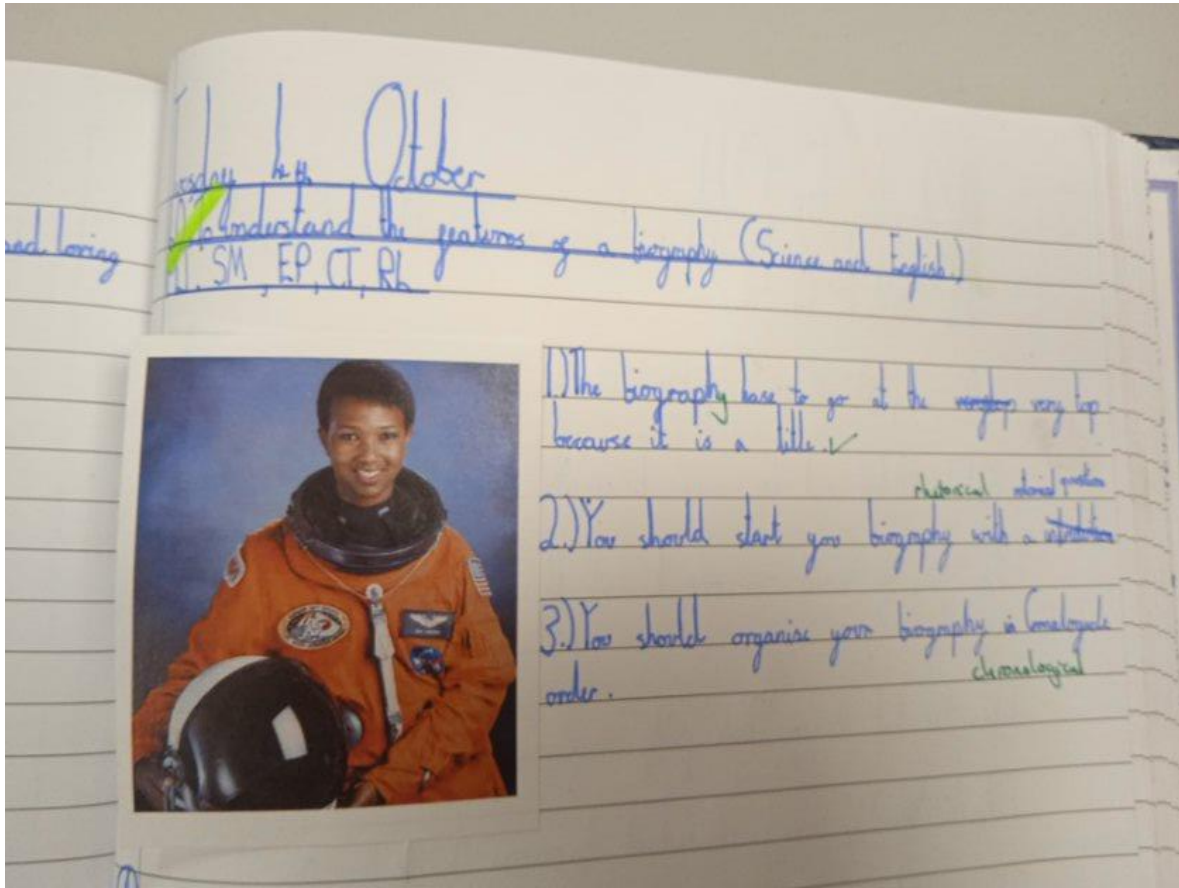 October
and loving
understand the features of a biography (Science and English.)
SM, EP, CT, Rh
1.) The biography hase to go at the very top
because it is a title.
rhetorical question
2.) You should start you biography with a
3.) You should organise your biography in
chronological
order.